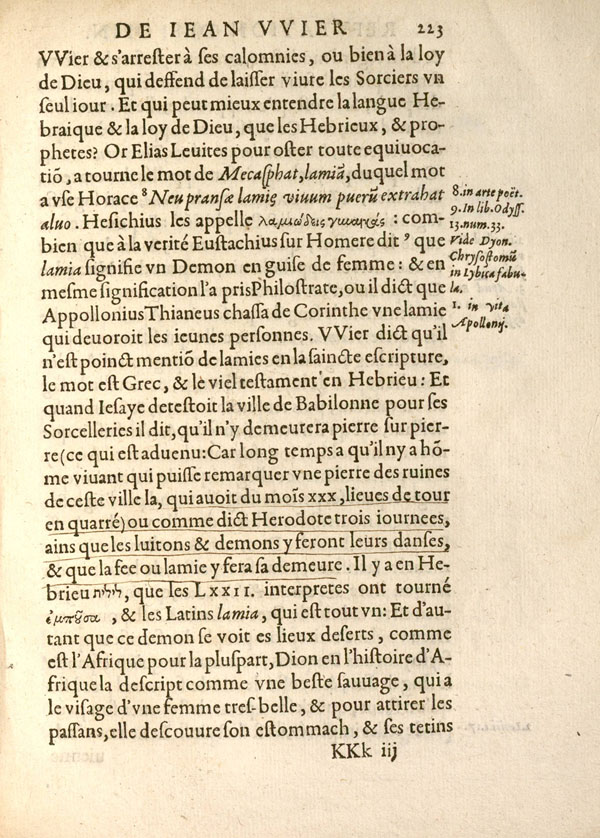 DE IEAN VVIER 223
VVier & s'arrester à ses calomnies, ou bien à la loy
de Dieu, qui deffend de laisser viure les Sorciers vn
seul iour. Et qui peut mieux entendre la langue He-
braique & la loy de Dieu, que les Hebrieux, & pro-
phetes? Or Elias Leuites pour oster toute equiuoca-
tiō, a tourne le mot de Mecasphat, lamiā, duquel mot
a vse Horace 8 Neu pransæ lamię viuum puerū extrahat
aluo. Hesichius les appelle λαμιώδεις γυναικάς : com-
bien que à la verité Eustachius sur Homere dit 9 que
lamia signifie vn Demon en guise de femme: & en
mesme signification l'a pris Philostrate, ou il dict que
Appollonius Thianeus chassa de Corinthe vne lamie
qui deuoroit les ieunes personnes. VVier dict qu'il
n'est poinct mentiō de lamies en la saincte escripture,
le mot est Grec, & le viel testament en Hebrieu: Et
quand Iesaye detestoit la ville de Babilonne pour ses
Sorcelleries il dit, qu'il n'y demeurera pierre sur pier-
re (ce qui est aduenu: Car long temps a qu'il n'y a hō-
me viuant qui puisse remarquer vne pierre des ruines
de ceste ville la, qui auoit du moïs xxx, lieues de tour
en quarré) ou comme dict Herodote trois iournees,
ains que les luitons & demons y feront leurs danses,
& que la fee ou lamie y fera sa demeure. Il y a en He-
brieu לילית, que les LXXII. interpretes ont tourné
ἐμποῦσα, & les Latins lamia, qui est tout vn: Et d'au-
tant que ce demon se voit es lieux deserts, comme
est l'Afrique pour la pluspart, Dion en l'histoire d'A-
frique la descript comme vne beste sauuage, qui a
le visage d'vne femme tres-belle, & pour attirer les
passans, elle descouure son estommach, & ses tetins
KKk iij
8. in arte poët.
9. In lib. Odyss.
13. num. 33.
Vide Dyon.
Chrysostomū
in Lybica fabu-
la.
1. in vita
Apollonij.